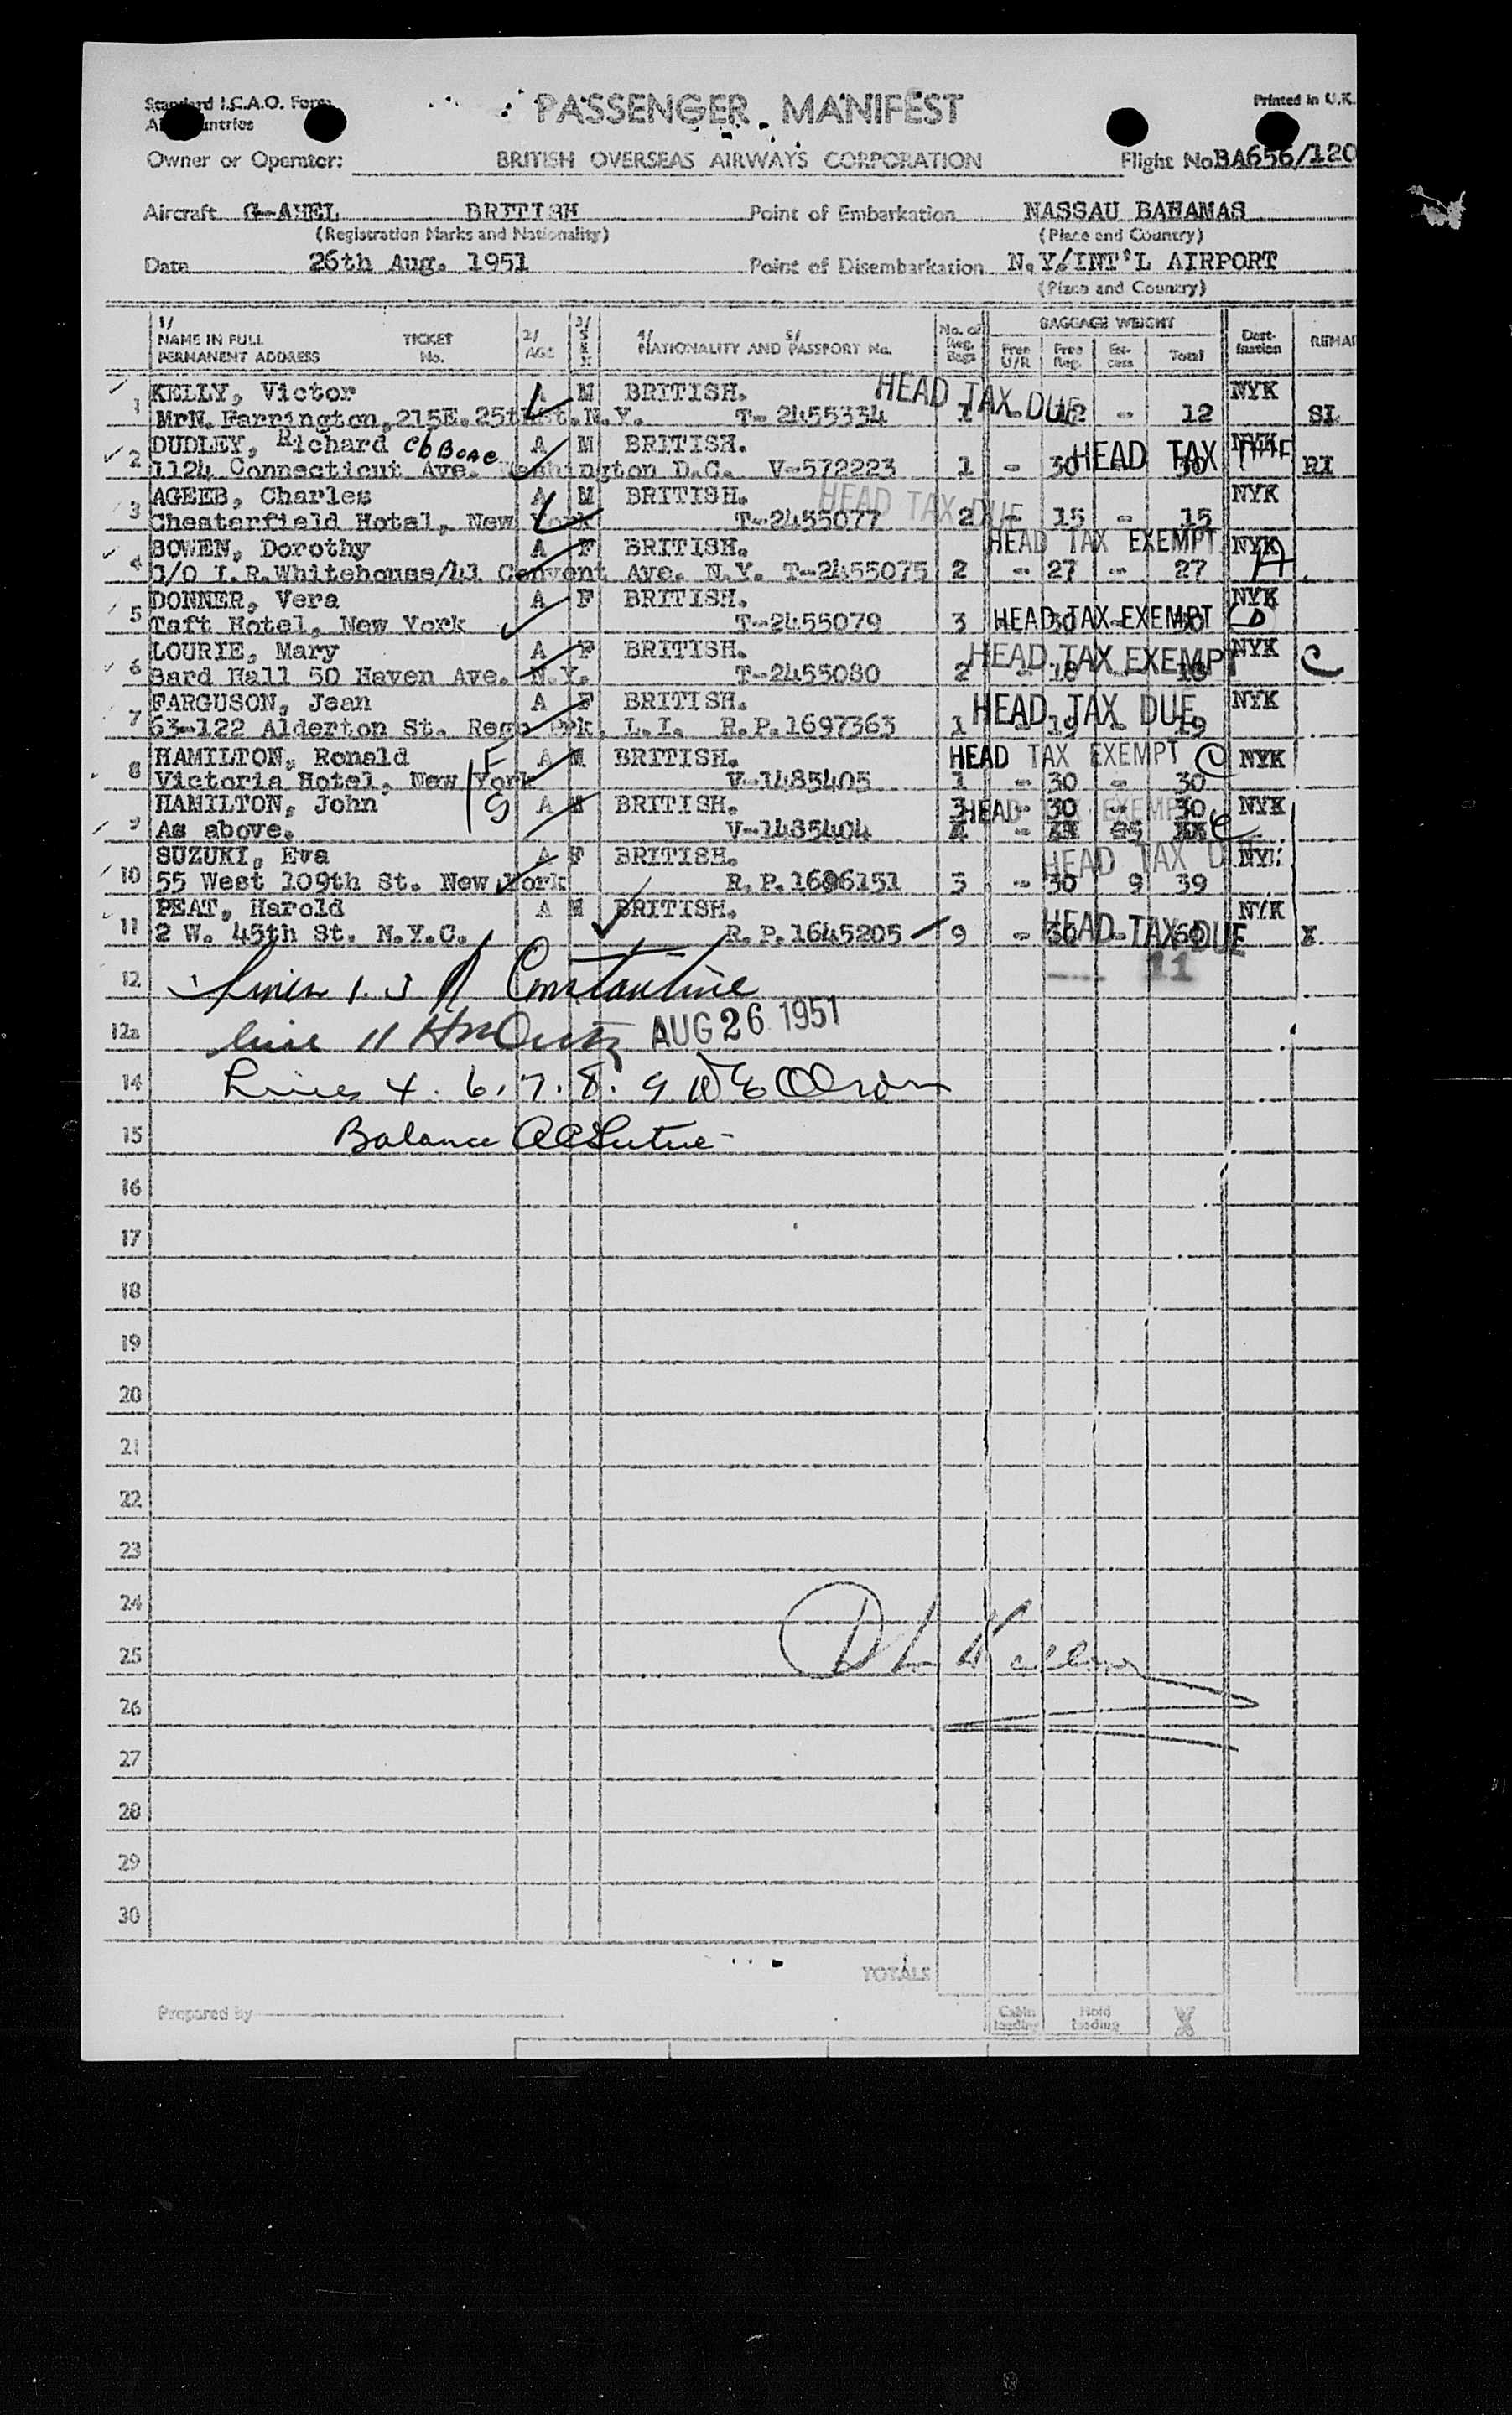 Standard I.C.A.O. Form
PASSENGER MANIFEST
Printed in U.K.
Owner or Operator: BRITISH OVERSEAS AIRWAYS CORPORATION Flight No BA656/120
Aircraft BRITISH Point of Embarkation NASSAU BAHAMAS
(Registration Marks and Nationality) (Place and Country)
Date 26th Aug. 1951 Point of Disembarkation N.Y./INT'L AIRPORT
(Place and Country)
1/ 2/ 3/ 4/ 5/ No. of BAGGAGE WEIGHT
NAME IN FULL TICKET AGE SEX NATIONALITY AND PASSPORT No. Reg. Free Free Ex- Total Dest- REMAR
PERMANENT ADDRESS No. Bags U/R Reg. cess ination
1 KELLY, Victor A M BRITISH. HEAD TAX DUE NYK
MrN. Farrington, 215E. 25th St. N.Y. T-2455334 1 - 12 - 12 SI
2 DUDLEY, Richard c/o BOAC A M BRITISH. HEAD TAX NYK
1124 Connecticut Ave. Washington D.C. V-572223 1 - 30 - 30 RI
3 AGEEB, Charles A M BRITISH. HEAD TAX DUE NYK
Chesterfield Hotal, New York T-2455077 2 - 15 - 15
4 BOWEN, Dorothy A F BRITISH. HEAD TAX EXEMPT NYK
C/O I.R.Whitehouse/41 Convent Ave. N.Y. T-2455075 2 - 27 - 27 A
5 DONNER, Vera A F BRITISH. NYK
Taft Hotel, New York T-2455079 3 - 30 - 30 HEAD TAX EXEMPT D
6 LOURIE, Mary A F BRITISH. HEAD TAX EXEMPT NYK C
Bard Hall 50 Haven Ave. N.Y. T-2455080 2 - 18 - 18
7 FARGUSON, Jean A F BRITISH. HEAD TAX DUE NYK
63-122 Alderton St. Rego Prk. L.I. R.P.1697363 1 - 19 - 19
8 HAMILTON, Ronald F A M BRITISH. HEAD TAX EXEMPT C NYK
Victoria Hotel, New York V-1485405 1 - 30 - 30
9 HAMILTON, John G A M BRITISH. 3 - 30 - 30 HEAD TAX EXEMPT NYK
As above. V-1485404 C
10 SUZUKI, Eva A F BRITISH. HEAD TAX DUE NYK
55 West 109th St. New York R.P.1686151 3 - 30 9 39
11 PEAT, Harold A M BRITISH. HEAD TAX DUE NYK
2 W. 45th St. N.Y.C. R.P.1645205 9 - X
12 Lines 1. 3 Constantine 11
12a line 11 AUG 26 1951
14 Lines 4. 6. 7. 8. 9. 10
15 Balance
16
17
18
19
20
21
22
23
24
25
26
27
28
29
30
TOTALS
Prepared By Cabin loading Hold loading